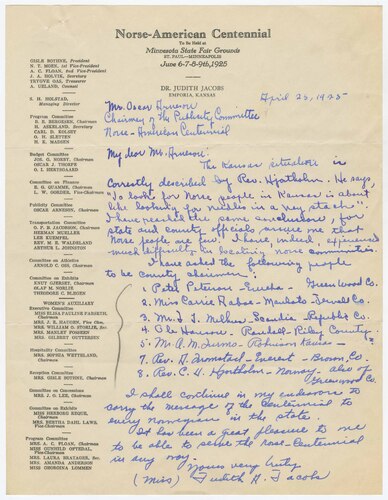 Norse-American Centennial
To Be Held at
Minnesota State Fair Grounds
ST. PAUL—MINNEAPOLIS
June 6-7-8-9th, 1925
DR. JUDITH JACOBS
EMPORIA, KANSAS
GISLE BOTHNE, President
N. T. MOEN, 1st Vice-President
A. C. FLOAN, 2nd Vice-President
J. A. HOLVIK, Secretary
TRYGVE OAS, Treasurer
A. UELAND, Counsel
S. H. HOLSTAD,
Managing Director
Program Committee
S. H. HOLSTAD
H. ASKELAND, Secretary
CARL D. KOLSET
O. H. SLETTEN
H. K. MADSEN
Budget Committee
JOE G. NORBY, Chairman
OSCAR J. THORPE
O. I. HERTSGAARD
Committee on Finance
E. G. QUAMME, Chairman
L. W.
Publicity Committee
OSCAR ARNESON, Chairman
Transportation Committee
O. P. B. JACOBSON, Chairman
HERMAN MUELLER
LEE KUEMPEL
REV. M. E. WALDELAND
ARTHUR L. JOHNSTON
Committee on Athletics
ARNOLD C. OSS, Chairman
Committee on Exhibits
KNUT GJERSET, Chairman
OLAF M. NORLIE
THEODORE C. BLEGEN
WOMEN'S AUXILIARY
Executive Committee
MISS ELISA PAULINE FARSETH,
Chairman
MRS. J. E. HAUGEN, Vice Chm.
MRS. WILLIAM O. STORLIE, Sec.
MRS. MANLEY FOSSEEN
MRS. GILBERT GUTTERSEN
Hospitality Committee
MRS. SOPHIA WETTELAND,
Chairman
Reception Committee
MRS. GISLE BOTHNE, Chairman
Committee on Concessions
MRS. J. O. LEE, Chairman
Committee on Exhibits
MISS HERBORG REQUE,
Chairman
MRS. BERTHA DAHL LAWS,
Vice-Chairman
Program Committee
MRS. A. C. FLOAN, Chairman
MISS GUNHILD OFTEDAL,
Vice-Chairman
MRS. LAURA BRATAGER, Sec.
MRS. AMANDA ANDERSON
MISS GEORGINA LOMMEN
April 25, 1925
Mr. Oscar Arneson
Chairman of the Publicity Committee
Norse-American Centennial
My dear Mr. Arneson:
The Kansas situation is
correctly described by Rev. Hjortholm. He says
"to look for Norse people in Kansas is about
like looking for needles in a hay stack".
I have reached the same conclusion, for
state and county officials assure me that
Norse people are few. I have, indeed, experienced
much difficulty in locating Norse communities.
I have asked the following people
to be county chairmen
1. Peter Peterson - Eureka - Greenwood Co.
2. Miss Carrie Rabae - Mankato - Jewell Co.
3. Mr. - Scandia - Republic Co.
4. Ole Hanson - Randolph - Riley County
5. Mr. A. M. - Robinson Kansas -
7. Rev. H. Tromstad - Everest - Brown, Co.
8. Rev. C. H. Hjortholm - Norway. also of
Greenwood Co.
I shall continue in my endeavors to
carry the message of the Centennial to
every norwegian in the state.
It has been a great pleasure to me
to be able to serve the Norse-Centennial
in any way.
Yours very truly
(Miss) Judith H. Jacobs